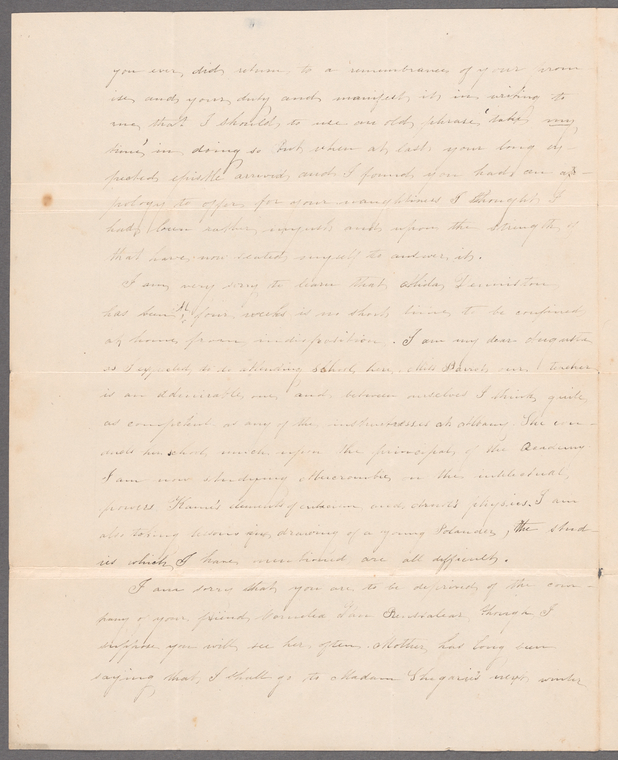 you ever did return to a remembrance of your prom
ise and your duty and manifest it in writing to
me that I should to use an old phrase 'take my
time' in doing so but when at last your long ex
pected epistle arrived and I found you had an a
pology to offer for your naughtiness I thought I
had been rather and upon the strength of
that have now seated myself to answer it.
I am very sorry to learn that Denniston
has been four weeks is no short time to be confined
at home from indisposition. I am my dear Augusta
as I expected to be attending school here. Miss our teacher
is an admirable one and between ourselves I think quite
as competent as any of the instructresses at Albany. She con
ducts her school much upon the principal of the Academy
I am now studying Abercrombie on the intellectual
powers Kame's elements of criticism and physics. I am
also taking lessons in drawing of a young Polander, the stud
ies which I have mentioned are all difficult.
I am sorry that you are to be deprived of the com
pany of your friend Cornelia Van Rensselaer though I
suppose you will see her often. Mother has long been
saying that I shall go to Madam next winter